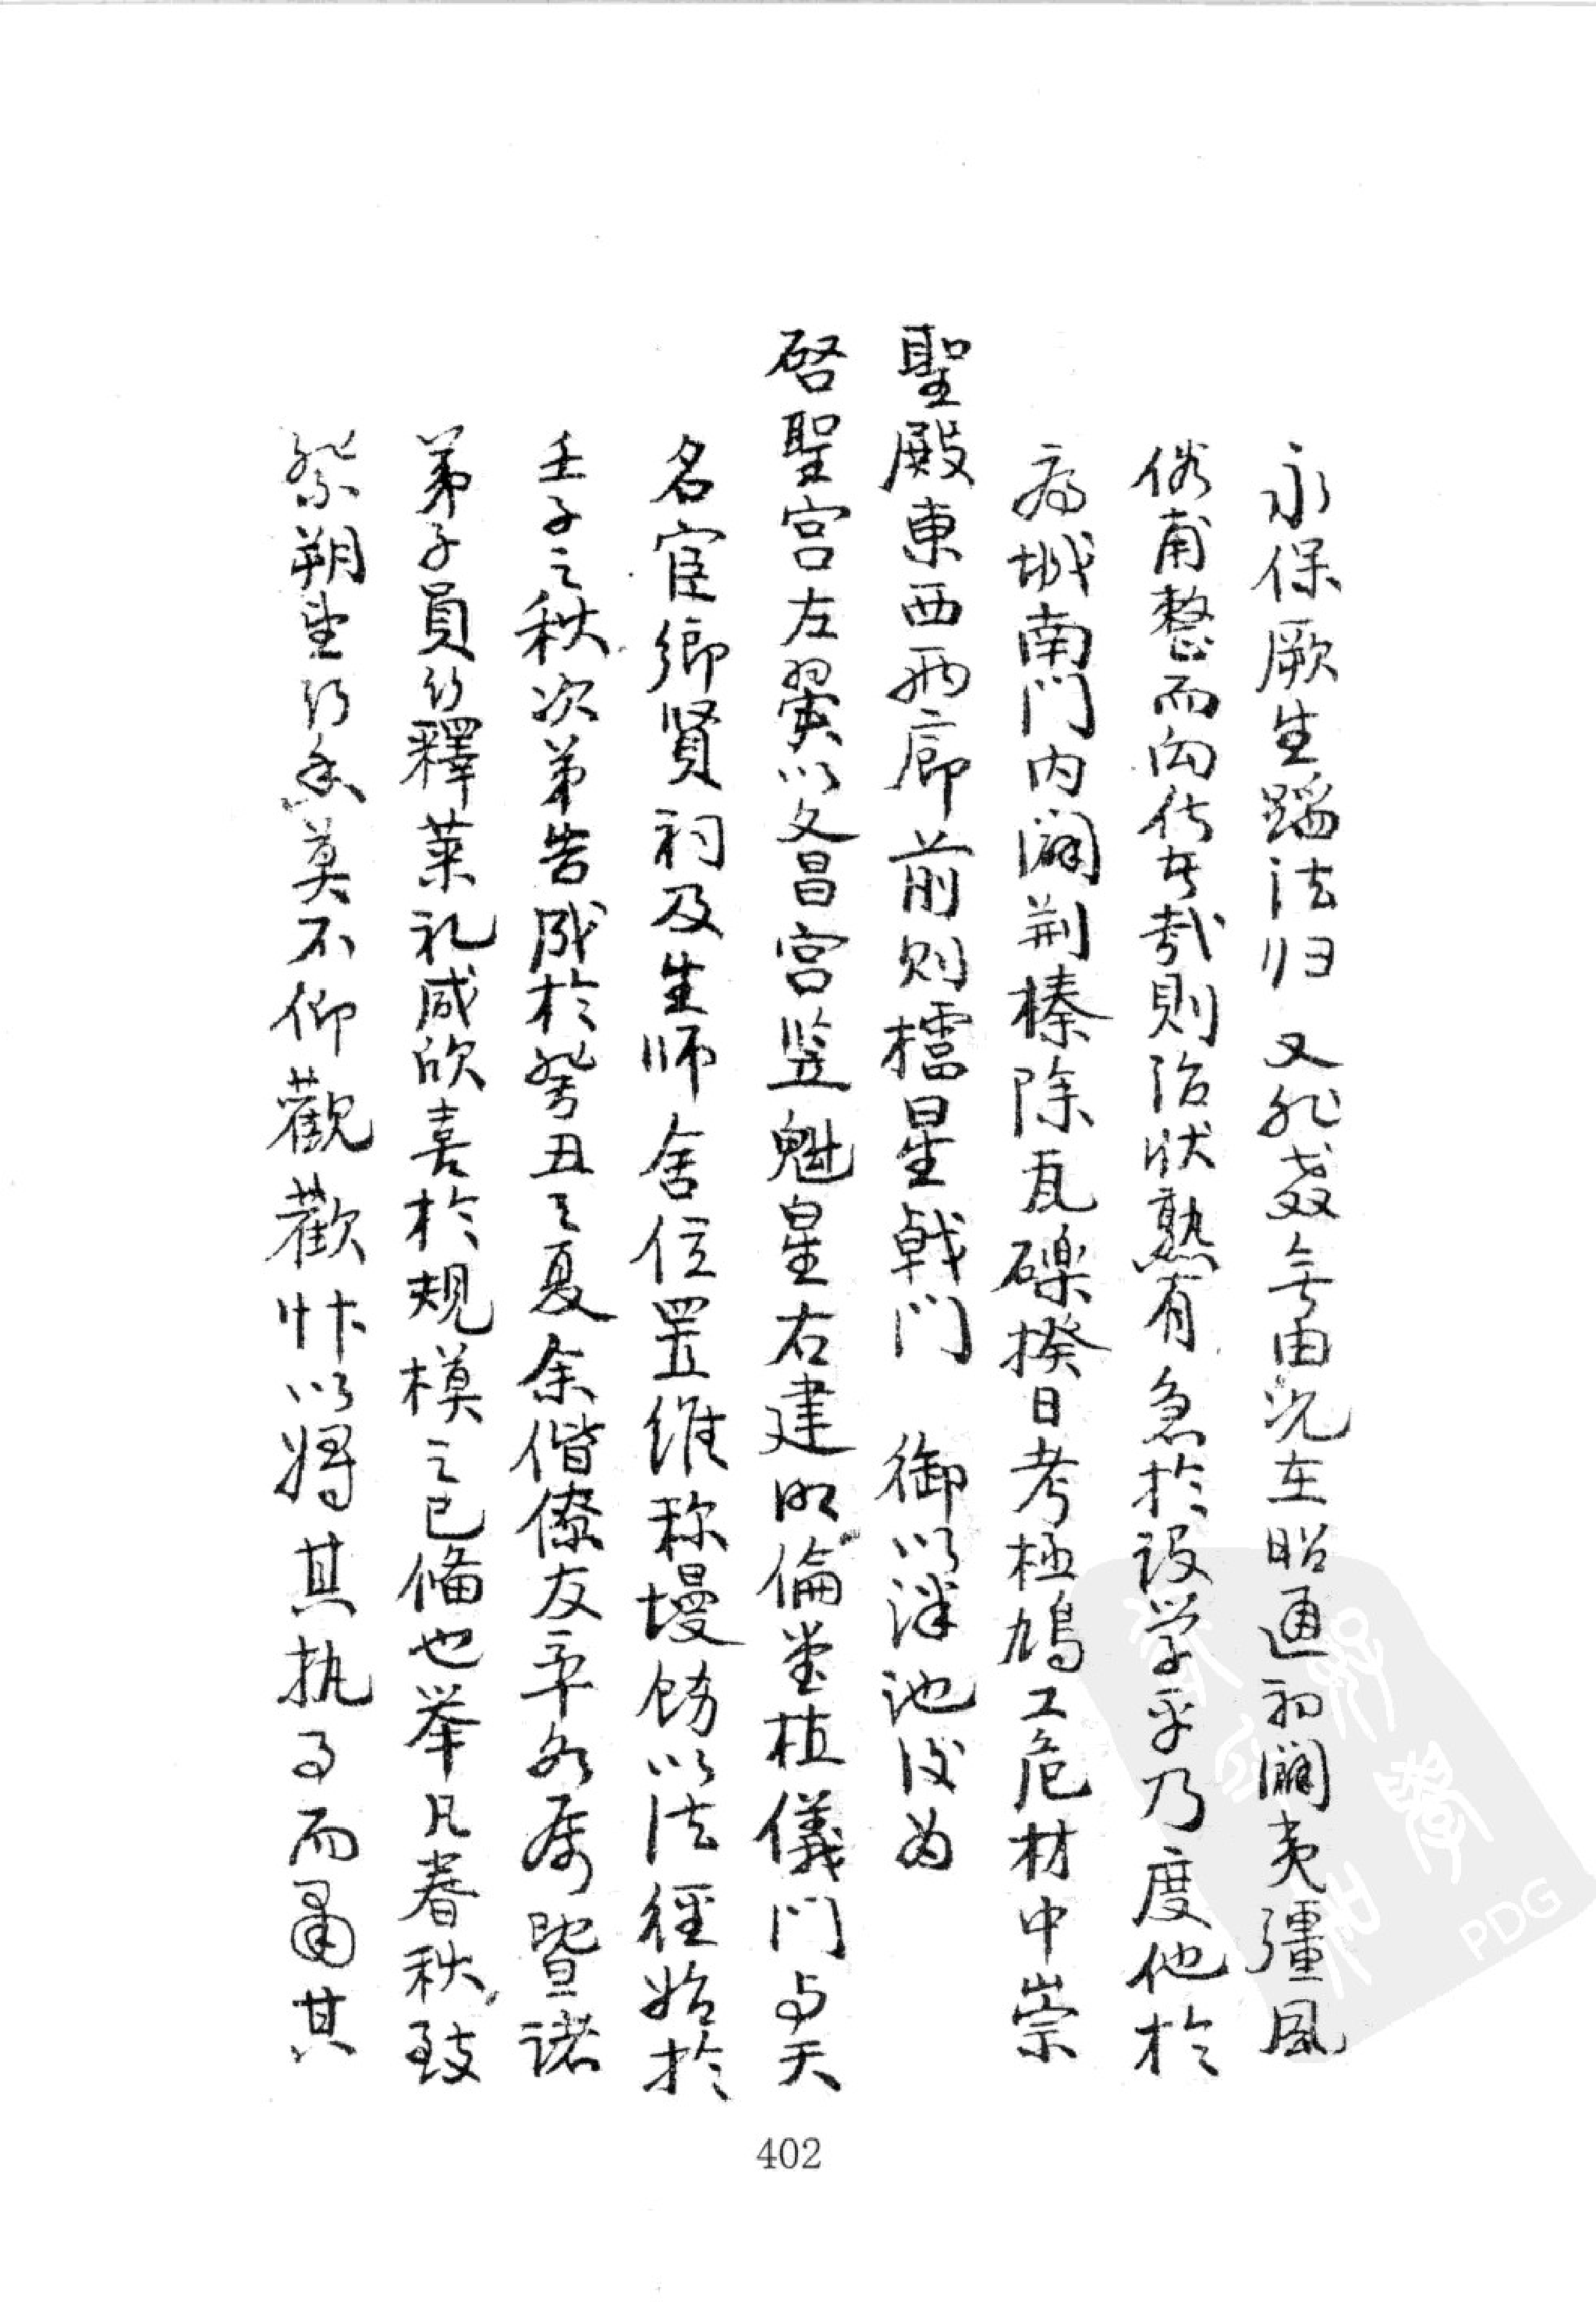 永保厥生蹈法归 又非教無由况在昭通初闢夷疆風
俗甫整而向化者哉則治状熟有急於設学乎乃度他於
府城南門内闢荆榛除瓦礫揆日考極鳩工庀材中崇
聖殿東西两廊前则櫺星戟门 御以泮池後为
啓聖宫左翼以文昌宫竖魁星右建明倫堂植儀门与天
名宦鄉賢祠及生师舍位置维称墁餙以法經始於
壬子之秋次第告成於癸丑之夏余偕僚友率各属暨諸
弟子員行釋菜礼咸欣喜於規模之已備也举凡春秋致
祭朔望行香莫不仰觀歡忭以將其执事而肅其
402
PDG